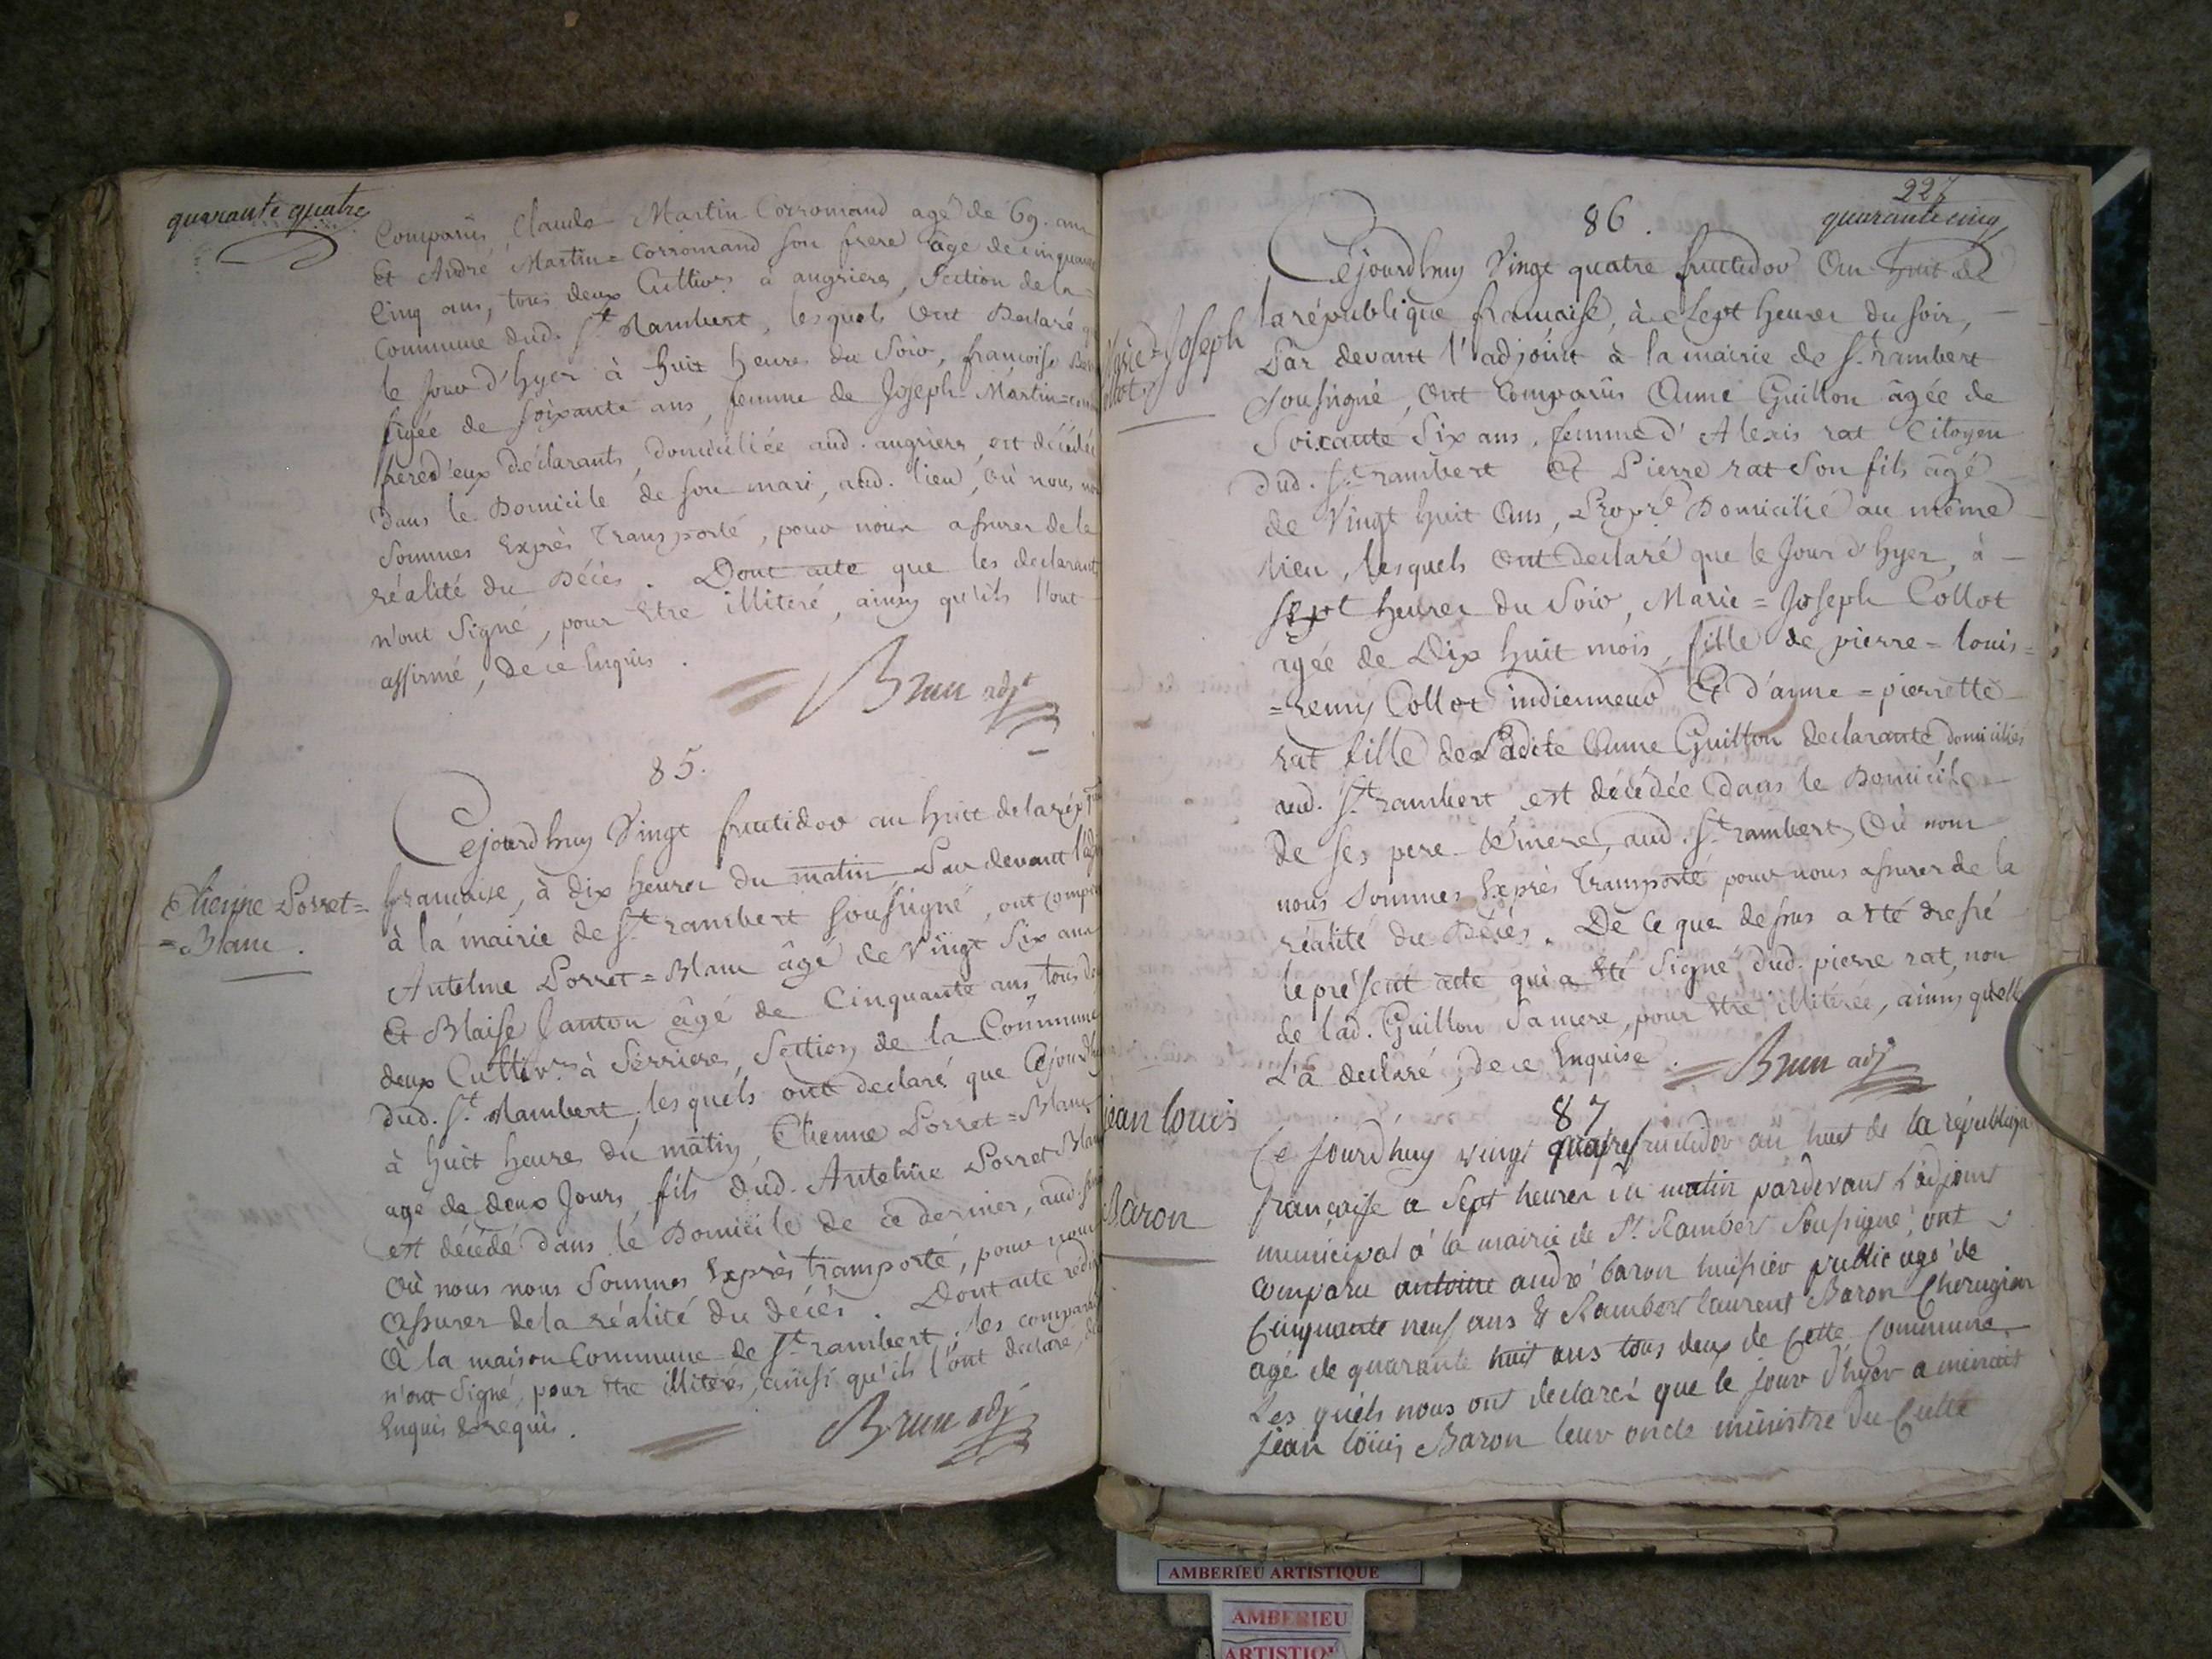 quarante quatre
Comparus, Claude Martin Corromand agé de 69. ans
Et André Martin = Corromand son frere âge de cinquante
Cinq ans, tous deux Cultivrs à angrieres, Section de la
Commune dud. St. Rambert, lesquels Ont Declaré
le Jour d'hyer à huit heures du Soir, francoise
âgée de soixante ans, femme de Joseph-Martin=
frere d'eux déclarants, domiciliée aud. angrieres, est décédée
dans le Domicile de son mari, aud. lieu, où nous
Sommes Exprès Transporté, pour nous assurer de la
réalité du Décès. Dont acte que les declarants
n'ont Signé, pour Etre illiteré, ainsy qu'ils l'ont
affirmé, de ce Enquis.
Brun adjt
85.
Etienne Porret=
=Blanc.
Cejourdhuy Vingt fructidor an huit de la rép
francaise, à dix heures du matin Par devant
à la mairie de St. rambert soussigné, ont
Antelme Porret=Blanc âgé de Vingt Six ans
Et Blaise Janton âgé de Cinquante ans, tous
deux Cultivrs à Serrieres, Section de la Commune
dud. St. Rambert, lesquels ont declaré que
à huit heures du matin, Etienne Porret=Blanc
agé de deux Jours, fils dud. Antelme Porret Blanc
est décédé dans le Domicile de ce dernier, aud.
Où nous nous Sommes Exprès transporté, pour nous
Assurer de la réalité du décès. Dont acte
à la maison Commune de St. rambert, les
n'ont Signé, pour Etre illiterés, ainsi qu'ils l'ont declaré,
Enquis & requis.
Brun adj
227
quarante cinq
86.
Marie=Joseph
Collot
Cejourdhuy Vingt quatre fructidor an huit de
la république francaise, à Sept heures du soir,
Par devant l'adjoint à la mairie de St. rambert
soussigné, Ont Comparûs Anne Guillon âgée de
Soixante Six ans, femme d'Alexis rat Citoyen
dud. St. rambert Et Pierre rat son fils âgé
de Vingt huit Ans, Propre. Domicilié au même
lieu, lesquels Ont declaré que le Jour d'hyer, à
sept heures du Soir, Marie=Joseph Collot
agée de Dix huit mois, fille de pierre=louis=
=remy Collot indienneur Et d'anne=pierrette
rat fille de Ladite Anne Guillon declarante, domiciliés
aud. St. rambert est décédée dans le Domicile
de ses pere & mere, aud. St. rambert, Où nous
nous Sommes Exprès Transporté pour nous assurer de la
réalité du Décès. De ce que dessus a Eté dressé
le présent acte qui a Eté Signé dud. pierre rat, non
de lad. Guillon sa mere, pour Etre illitérée, ainsy qu'elle
L'a declaré, de ce Enquise.
Brun adj
87
jean louis
Baron
Ce Jourdhuy vingt quatre fructidor an huit de la république
française a Sept heures du matin pardevant L'adjoint
municipal á la mairie de St. Rambert Soussigné, ont
comparu antoine andré baron huissier public agé de
Cinquante neuf ans & Rambert laurent Baron Cherugien
agé de quarante huit ans tous deux de Cette Commune
Les quels nous ont declaré que le jour d'hyer a minuit
jean loüis Baron leur oncle ministre du Culte
AMBERIEU ARTISTIQUE
AMBERIEU
ARTISTIQUE